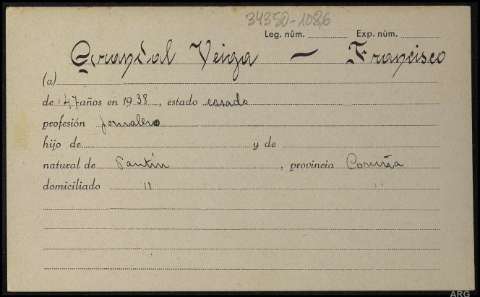 34350-1086
Leg. núm. Exp. núm.
Grandal Veiga — Francisco
(a)
de 47 años en 1938, estado casado
profesión jornalero
hijo de y de
natural de Pantín, provincia Coruña
domiciliado " "
ARG